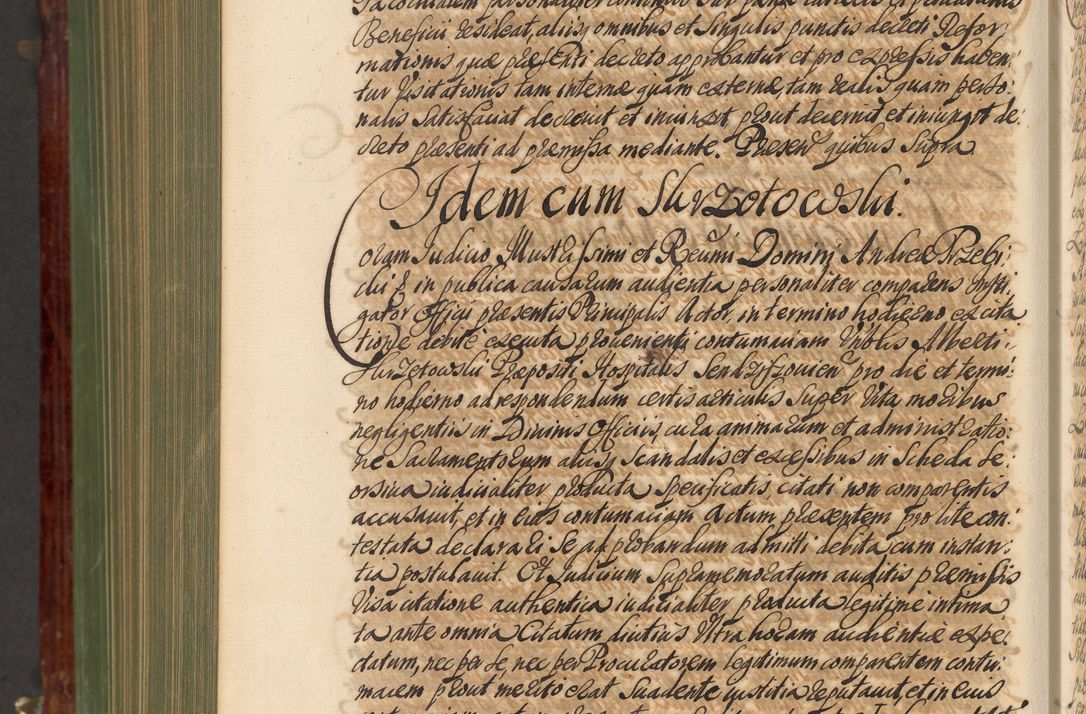 Beneficii resideat, aliisq omnibus et Singulis punctis decreti Refor
mationis quæ præsenti decreto approbantur et pro expressis haben
tur Visitationis tam internæ quam externæ, tam realis quam perso:
nalis Satisfaciat decrevit et iniunxit, prout decernit et iniungit de:
creto præsenti ad præmissa mediante. Præsen: quibus Supra.
Idem cum Skrzetowski.
Coram Iudicio Illustrissimi et Reverendissimi Domini Andreæ Trzebi:
cki & in publica causarum audientia personaliter comparens Insti
gator Officii præsentis Principalis Actor, in termino hodierno ex cita
tione debite executa provenienti contumaciam Vblis Alberti
Skrzetowski Præpositi Hospitalis Sendziszovien pro die et termi:
no hodierno ad respondendum certis articulis Super Vita moribus
negligentiis in Divinis Officiis, cura animarum et administratio:
ne Sacramentorum aliisq Scandalis et excessibus in Scheda Se:
orsiva iudicialiter producta Specificatis, citati non comparentis
accusavit, et in eius contumaciam Actum præsentem pro lite con:
testata declarari Se ad probandum admitti debita cum instan:
tia postulavit. Et Iudicium Supramemoratum auditis præmissis
Visa citatione authentica iudicialiter producta legitime intima
ta ante omnia Citatum diutius Vltra horam audientiæ expe:
ctatum, nec per Se nec per Procuratorem legitimum comparentem contu:
macem prout merito erat Suadente iustitia reputavit, et in eius